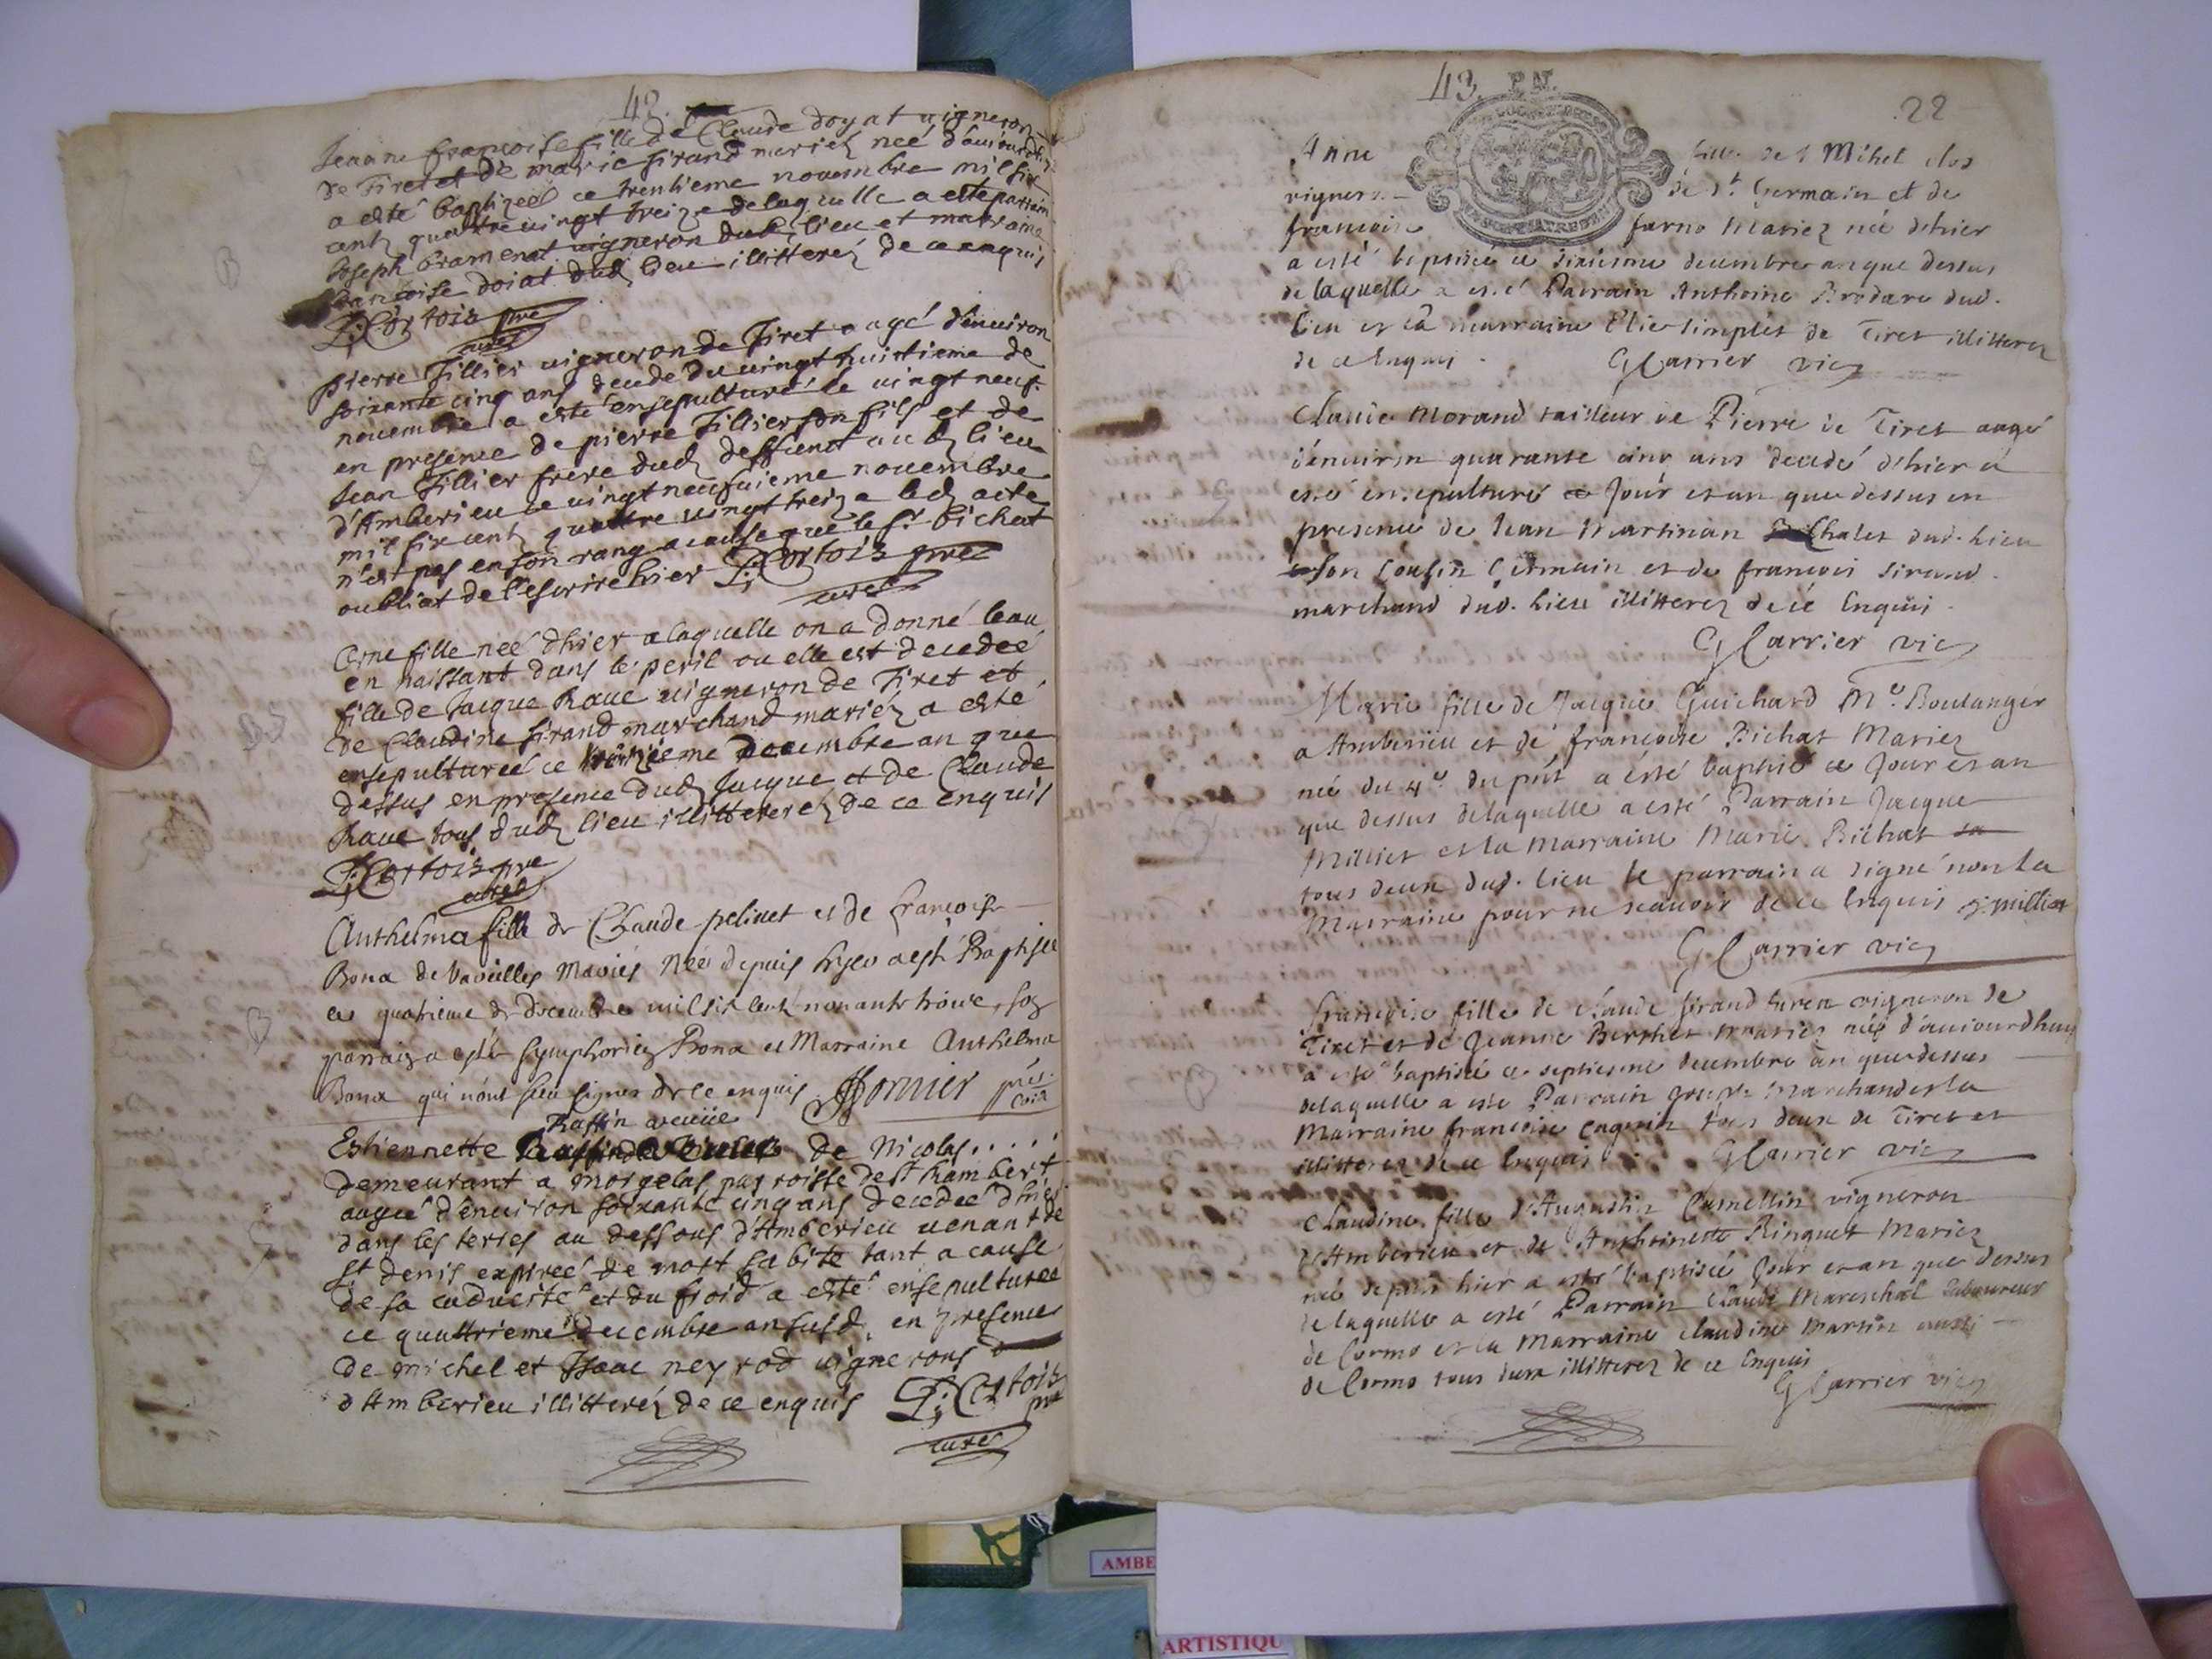 42.
Jeanne francoise fille de Claude doyat vigneron
de Tiret et de marie sirand mariez neé d'auiourdhui
a esté baptizeé ce trentieme novembre mil six
cents quattre vingt treize de laquelle a esté parrain
Joseph bramerat vigneron dud lieu et marraine
francoise doiat dud lieu illitterez de ce enquis
P: Cortois pre
curé
pierre Tillier vigneron de Tiret aagé d'enuiron
soixante cinq ans decede du vingt huistieme de
nouembre a esté ensepulturé le vingt neuf
en presence de pierre Tillier son fils et de
Jean Tillier frere dud deffunct aud lieu
d'Amberieu ce vingt neufuieme nouembre
mil six cents quattre vingt treize led acte
n'est pas en son rang a cause que le sr bichat
oubliat de l'escrire hier P: Cortois pre
curé
Une fille neé dhier a laquelle on a donné leau
en naissant dans le peril ou elle est decedeé
fille de Jacque Raue vigneron de Tiret et
de Claudine sirand marchand mariez a esté
ensepultureé ce troizieme decembre an que
dessus en presence dud Jacque et de Claude
Raue tous dud lieu illitterez de ce enquis
P: Cortois pre
curé
Anthelma fille de Claude pelinet et de francoise
Bona de Vareilles Mariés Neé depuis hyer a esté Baptisée
ce quatrieme de decembre mil six cent nonante troise, son
parrain a esté Symphorien Bona et Marraine Anthelma
Bona qui n'ont sceu signer de ce enquis
Raffin veuue
Estiennette de Nicolas.....
demeurant a morgelas parroisse de St Rambert
aagée d'enuiron soixante cinq ans decedeé d'hier
dans les terres au dessous d'Amberieu uenant de
St denis expireé de mort subite tant a cause
de sa caducité et du froid a esté ensepultureé
ce quattrieme decembre an susd. en presence
de michel et Isaac neyrod vignerons
d'Amberieu illitterez de ce enquis P: Cortois
pre
curé
43. 22
Anne fille de Mihel clos
vigneron de St Germain et de
francoise farno Mariez née d'hier
a esté baptisée ce sixiesme decembre an que dessus
de laquelle a esté Parrain Anthoine Brodare dud.
lieu et la marraine Elie simplet de Tiret illitterez
de ce Enquis. G Carrier vic
Claude Morand tailleur de Pierre de Tiret aagé
d'enuiron quarante cinq ans decedé d'hier a
esté ensepulturé ce Jour et an que dessus en
presence de Jean Martinan Chalet dud. lieu
son Cousin Germain et de francois sirand
marchand dud. lieu illitterez de ce Enquis.
G Carrier vic
Marie fille de Jacque Guichard Me. Boulanger
a Amberieu et de francoise Bichat Mariez
née du 4e du pnt a esté baptisé ce Jour et an
que dessus de laquelle a esté Parrain Jacque
Milliet et la Marraine Marie Bichat
tous deux dud. lieu le parrain a signé non la
Marraine pour ne scauoir de ce Enquis J: milliet
G Carrier vic
francoise fille de Claude sirand vigneron de
Tiret et de Jeanne Berthet mariez née d'auiourdhuy
a esté baptisée ce septiesme decembre an que dessus
de laquelle a esté Parrain Marchand et la
Marraine francoise tous deux de Tiret et
illitterez de ce Enquis. G Carrier vic
Claudine fille d'Augustin Camellin vigneron
d'Amberieu et de Anthoinette Ringuet Mariez
née depuis hier a esté baptisée Jour et an que dessus
de laquelle a esté Parrain Claude Mareschal laboureur
de Cormo et la Marraine Claudine Martin aussi
de Cormo tous deux illitterez de ce Enquis
G Carrier vic
AMBE
ARTISTIQU